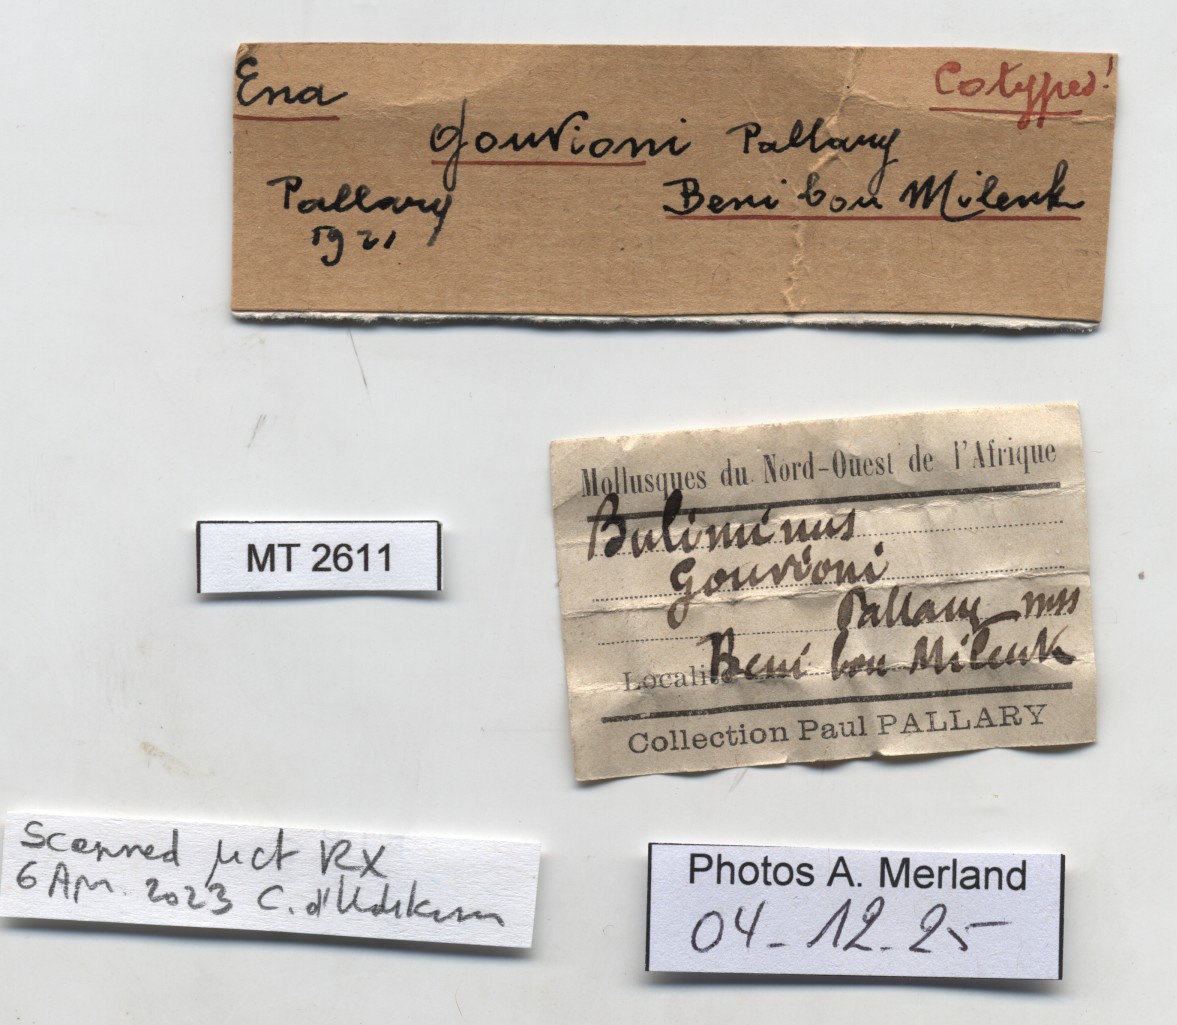 Ena
Cotypes!
gouvioni Pallary
Pallary
1921
Beni bou Milenk
Mollusques du Nord-Ouest de l'Afrique
Buliminus
gouvioni
Pallary mss
Localité Beni bou Milenk
Collection Paul PALLARY
MT 2611
Scanned µct RX
6 Apr. 2023 C. d'Udekem
Photos A. Merland
04-12-25